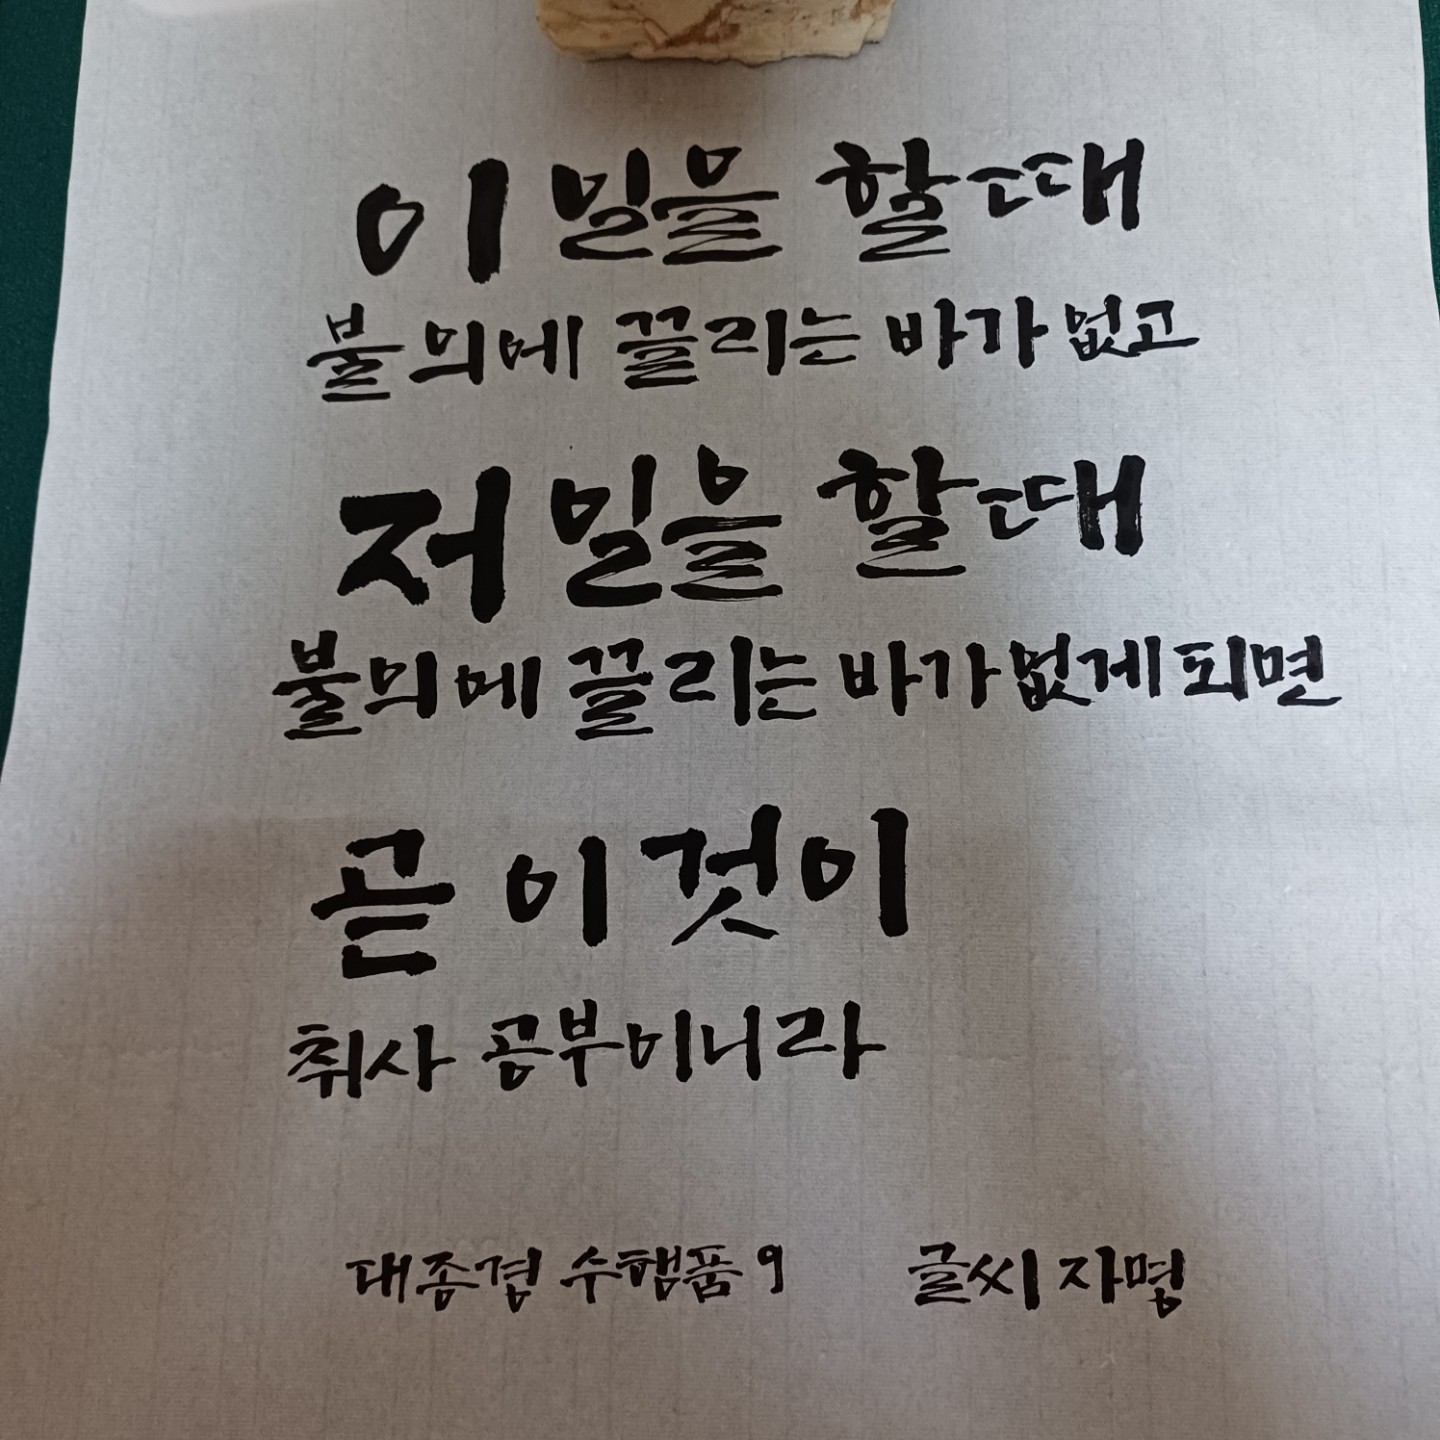 이 일을 할때
불의에 끌리는 바가 없고
저 일을 할때
불의에 끌리는 바가 없게 되면
곧 이것이
취사 공부이니라
대종경 수행품 9 글씨 자명